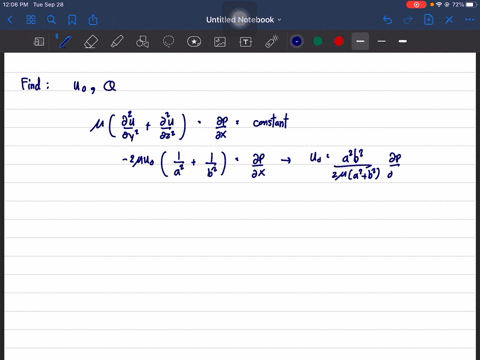 12:06 PM Tue Sep 28
72%
Untitled Notebook
Find: u₀, Q
μ ( ∂²u/∂y² + ∂²u/∂z² ) = ∂p/∂x = constant
-2μu₀ ( 1/a² + 1/b² ) = ∂p/∂x → u₀ = a²b²/2μ(a²+b²) ∂p/∂